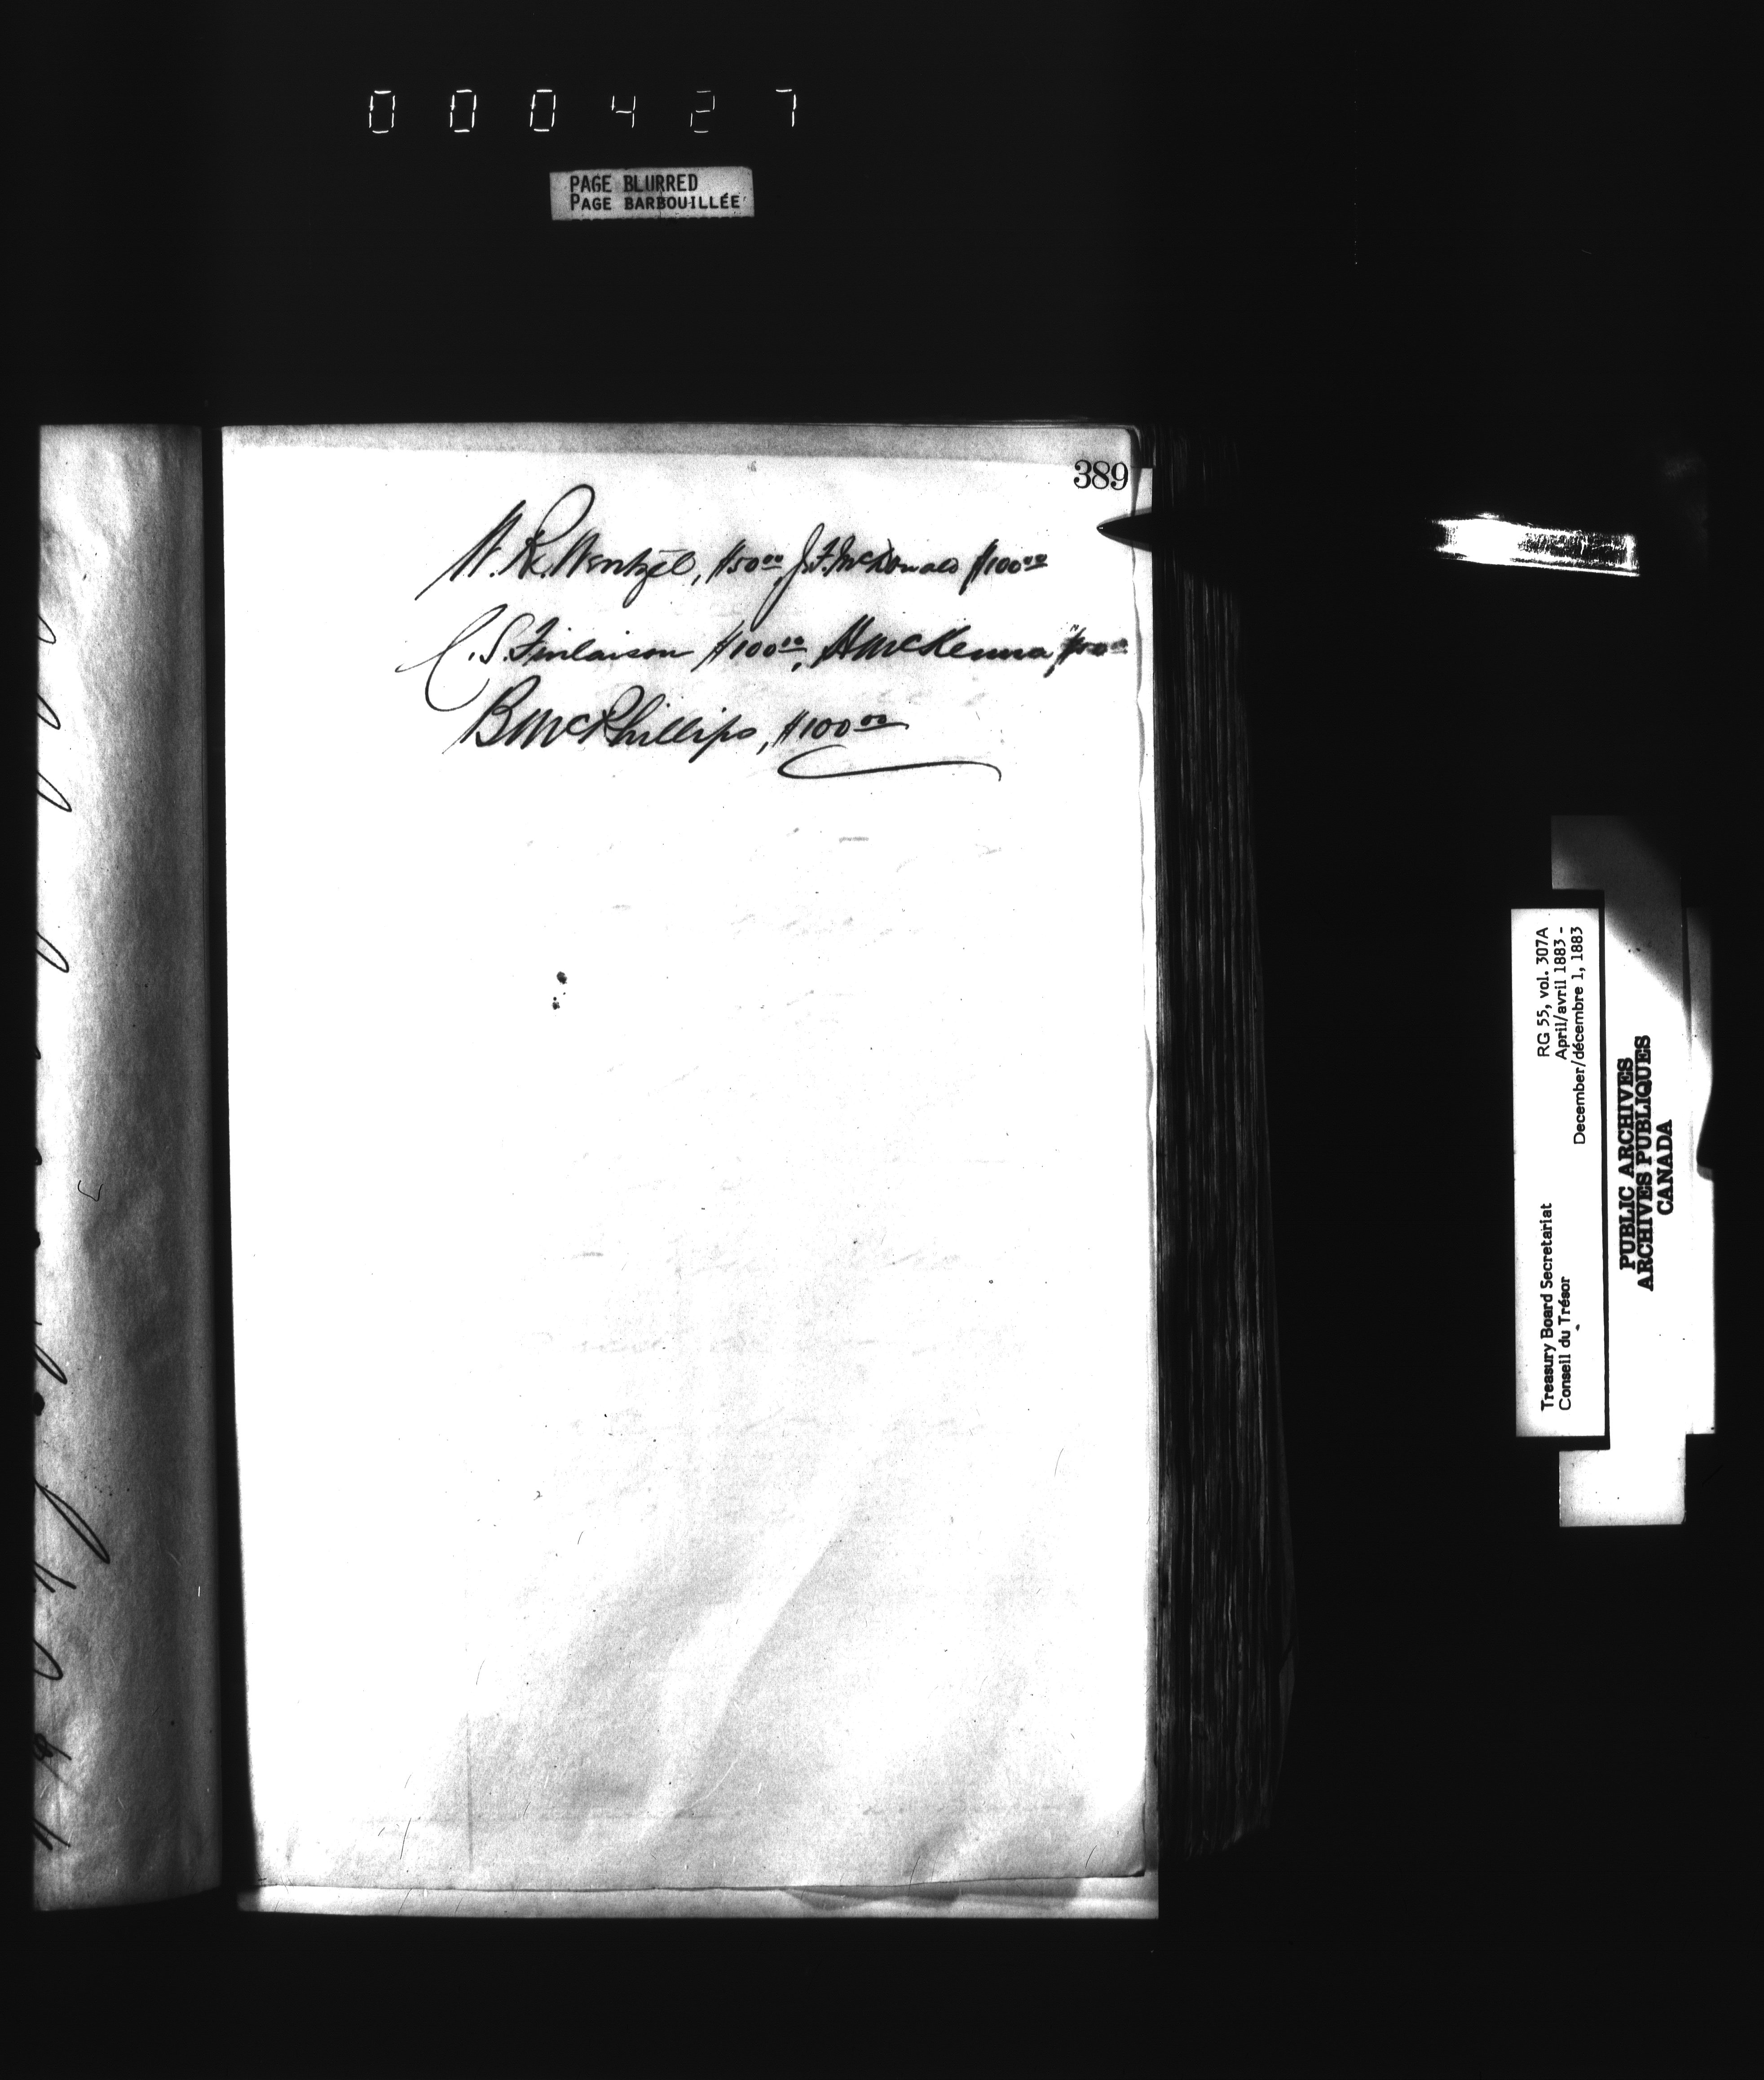 000427
PAGE BLURRED
PAGE BARBOUILLÉE
389
W. R. Wentzel, $50.00, J. F. McDonald $100.00
C. S. Finlaison $100.00, H McKenna,
B McPhillips, $100.00
RG 55, vol. 307A
April/avril 1883 -
December/décembre 1, 1883
Treasury Board Secretariat
Conseil du Trésor
PUBLIC ARCHIVES
ARCHIVES PUBLIQUES
CANADA